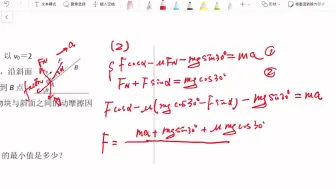 (2)
以 v₀=2
，沿斜面
到 B 点
物块与斜面之间的动摩擦因
的最小值是多少？
Fcosα-μF_N-mgsin30°=ma ①
F_N+Fsinα=mgcos30° ②
Fcosα-μ(mgcos30°-Fsinα)-mgsin30°=ma
F= ma+mgsin30°+μmgcos30°